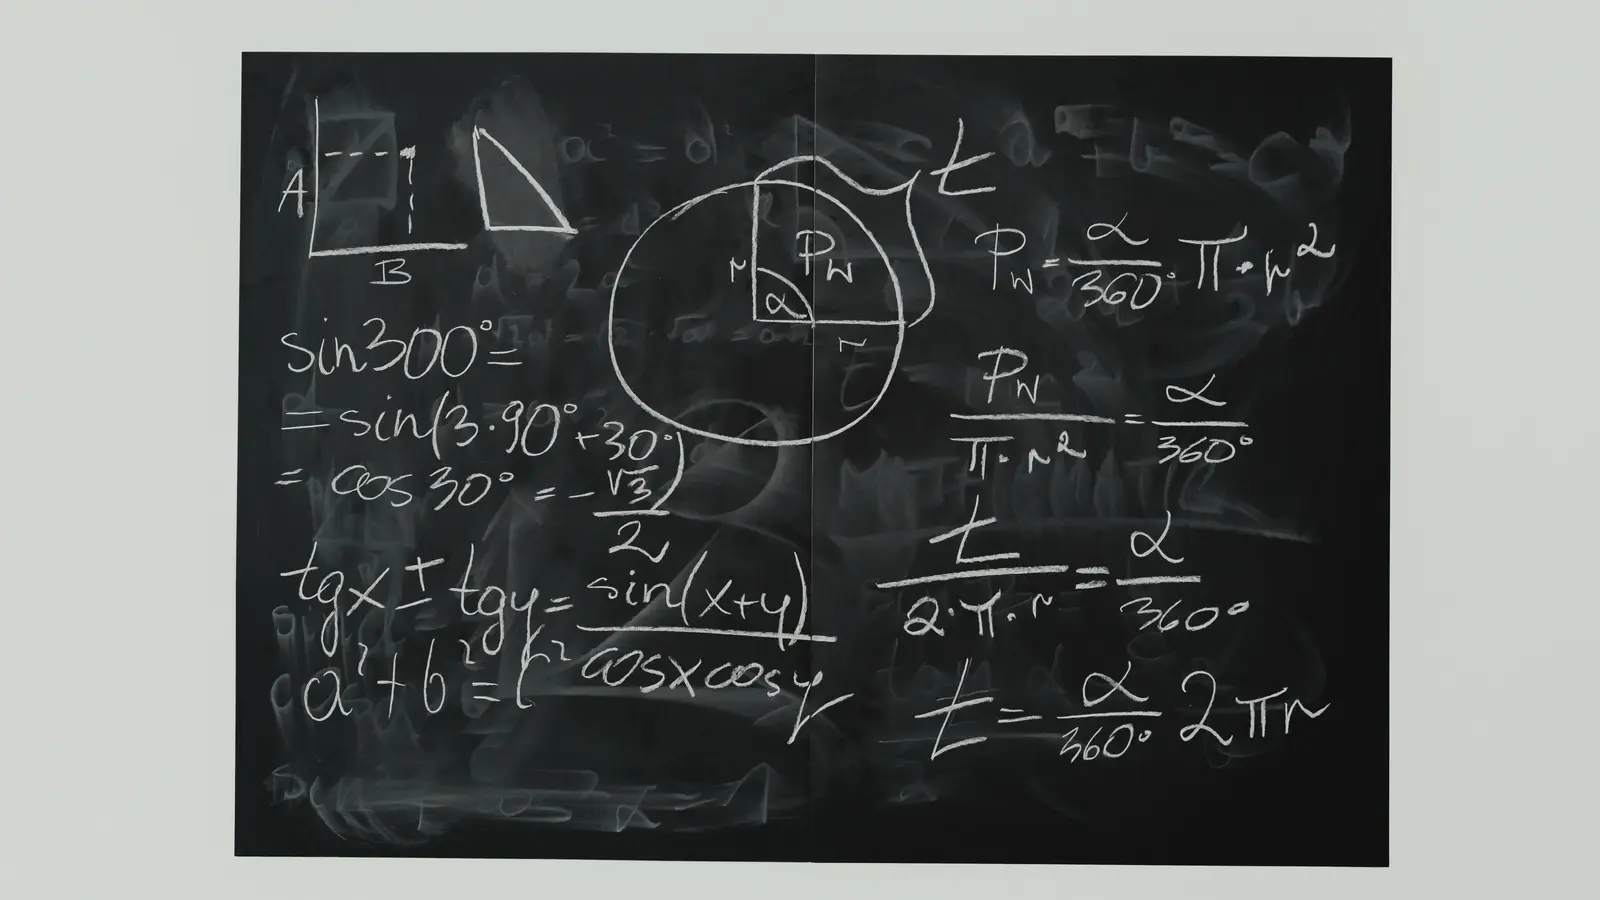 A
B
sin300°=
=sin(3·90°+30°)
= cos30° = -√3/2
tgx ± tgy = sin(x+y)/cosxcosy
a²+b²=c²
t
P_W
r
α
r
P_W = α/360° π·r²
P_W/π·r² = α/360°
t/2·π·r = α/360°
t = α/360° 2πr